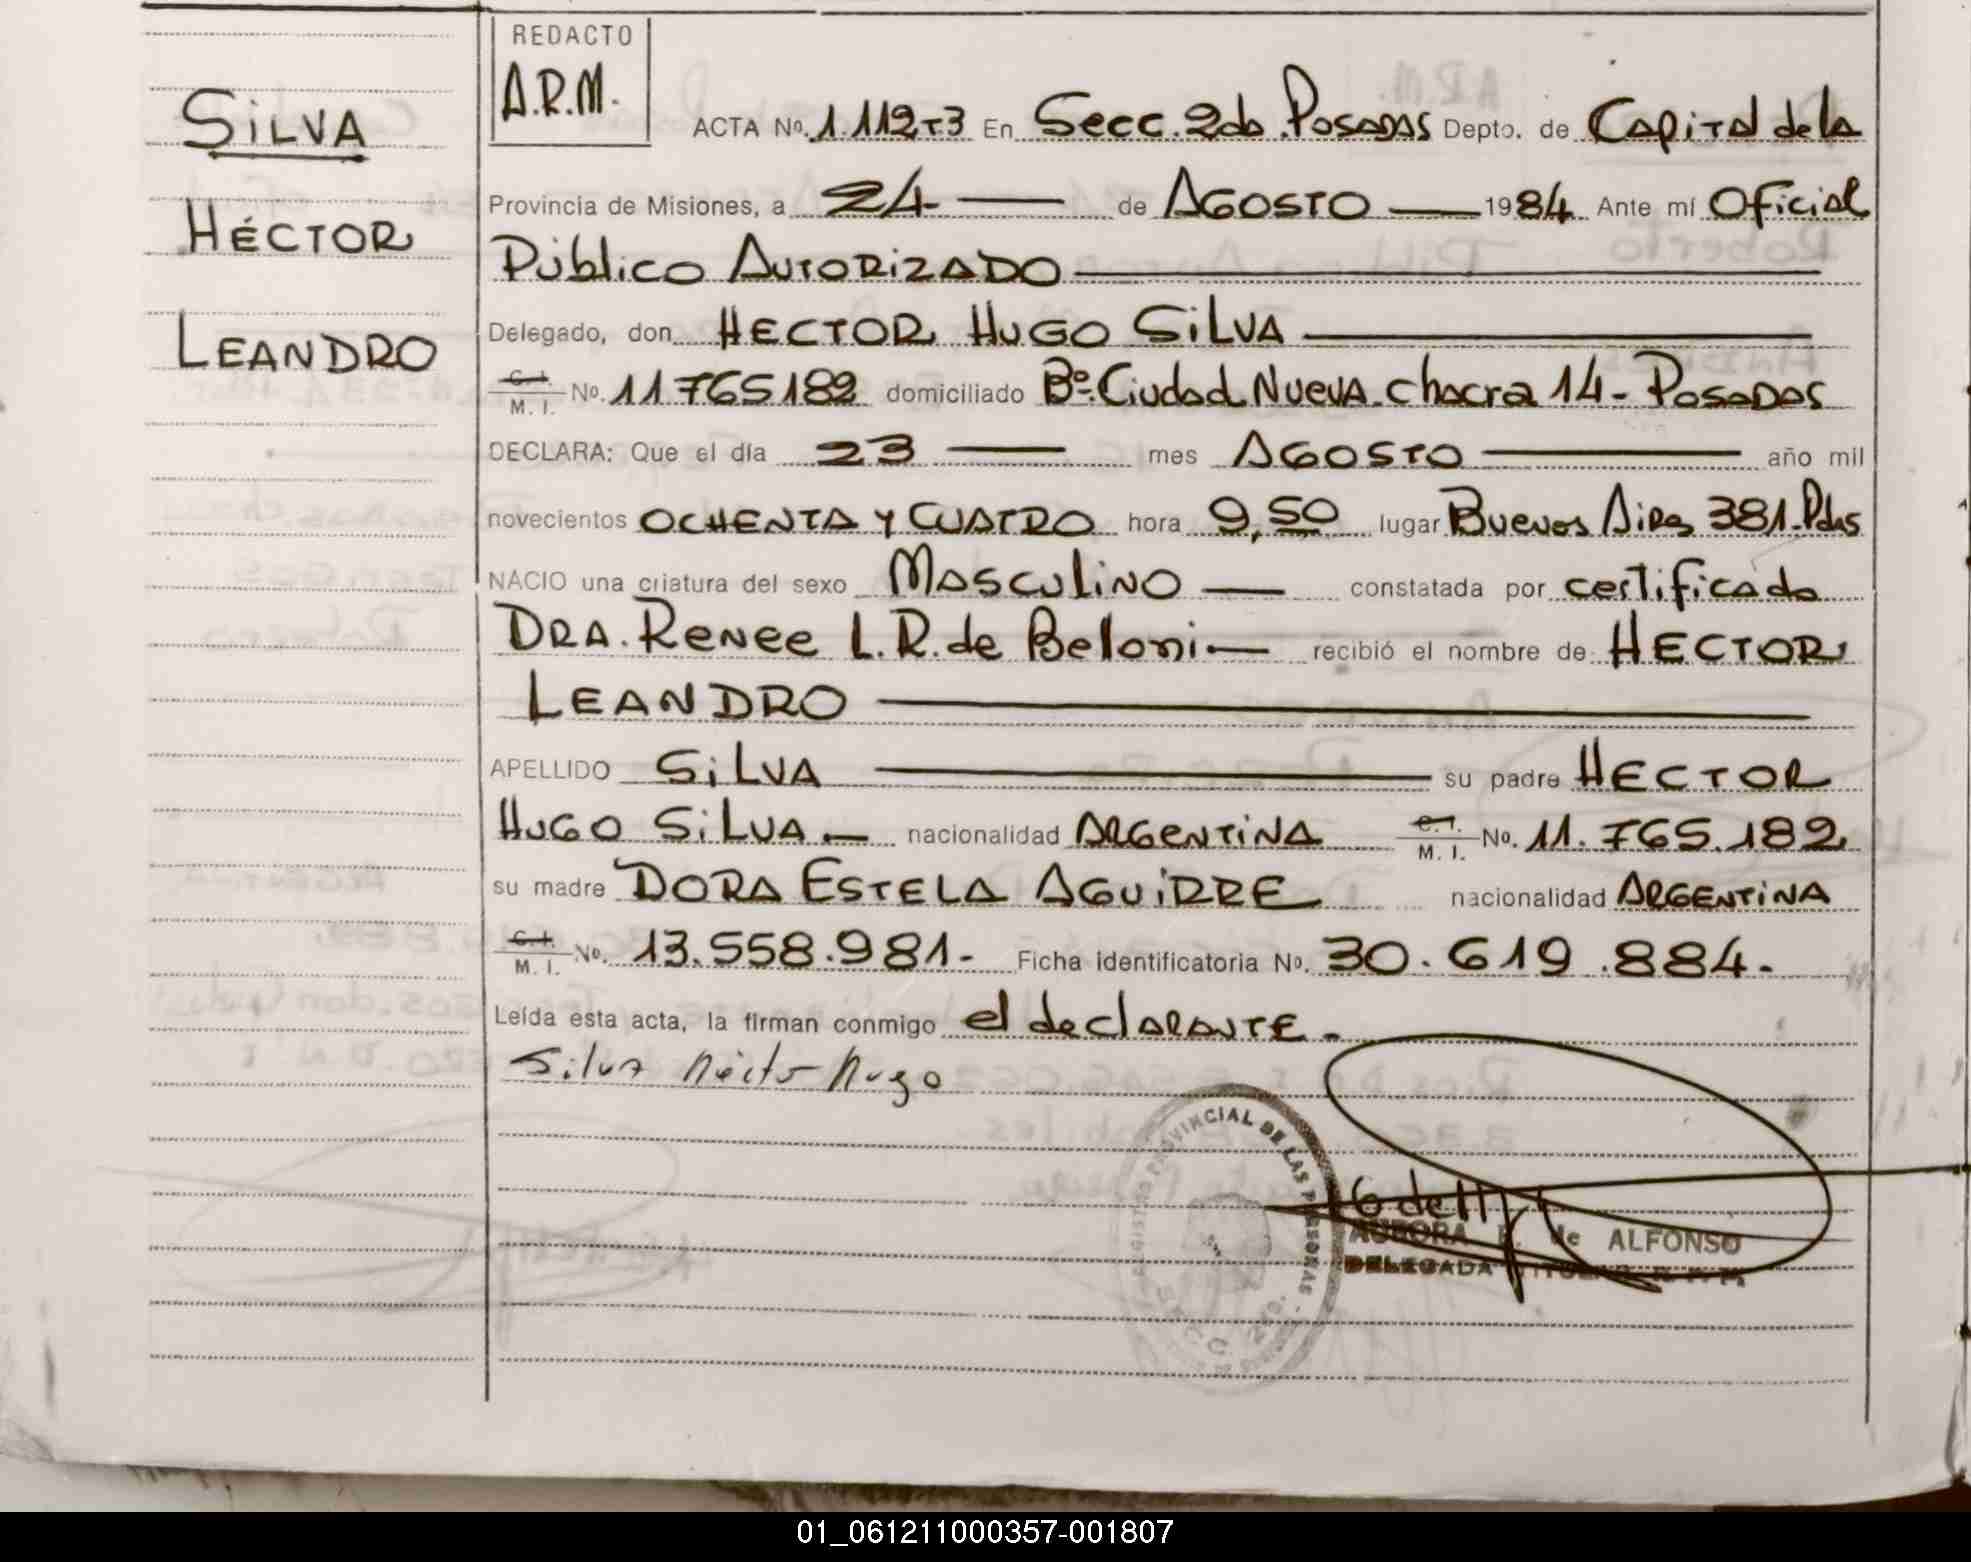 SILVA
HÉCTOR
LEANDRO
REDACTO
A.R.M.
ACTA No. 1.112 T3 En Secc. 2da Posadas Depto. de Capital de la
Provincia de Misiones, a 24 de AGOSTO 1984 Ante mí Oficial
Público Autorizado
Delegado, don HECTOR HUGO SILVA
C.I. M. I. No. 11765182 domiciliado Bº. Ciudad Nueva chacra 14 - Posadas
DECLARA: Que el día 23 mes AGOSTO año mil
novecientos OCHENTA Y CUATRO hora 9,50 lugar Buenos Aires 381 - Pdas
NACIO una criatura del sexo Masculino constatada por certificado
DRA. Renee L. R. de Beloni recibió el nombre de HECTOR
LEANDRO
APELLIDO SILVA su padre HECTOR
HUGO SILVA nacionalidad ARGENTINA C.I. M. I. No. 11.765.182
su madre DORA ESTELA AGUIRRE nacionalidad ARGENTINA
C.I. M. I. No. 13.558.981 - Ficha identificatoria No. 30.619.884 -
Leída esta acta, la firman conmigo el declarante -
Silva Héctor Hugo
PROVINCIAL DE LAS PERSONAS
SECC. 2da.
AURORA de ALFONSO
DELEGADA TITULAR
01_061211000357-001807